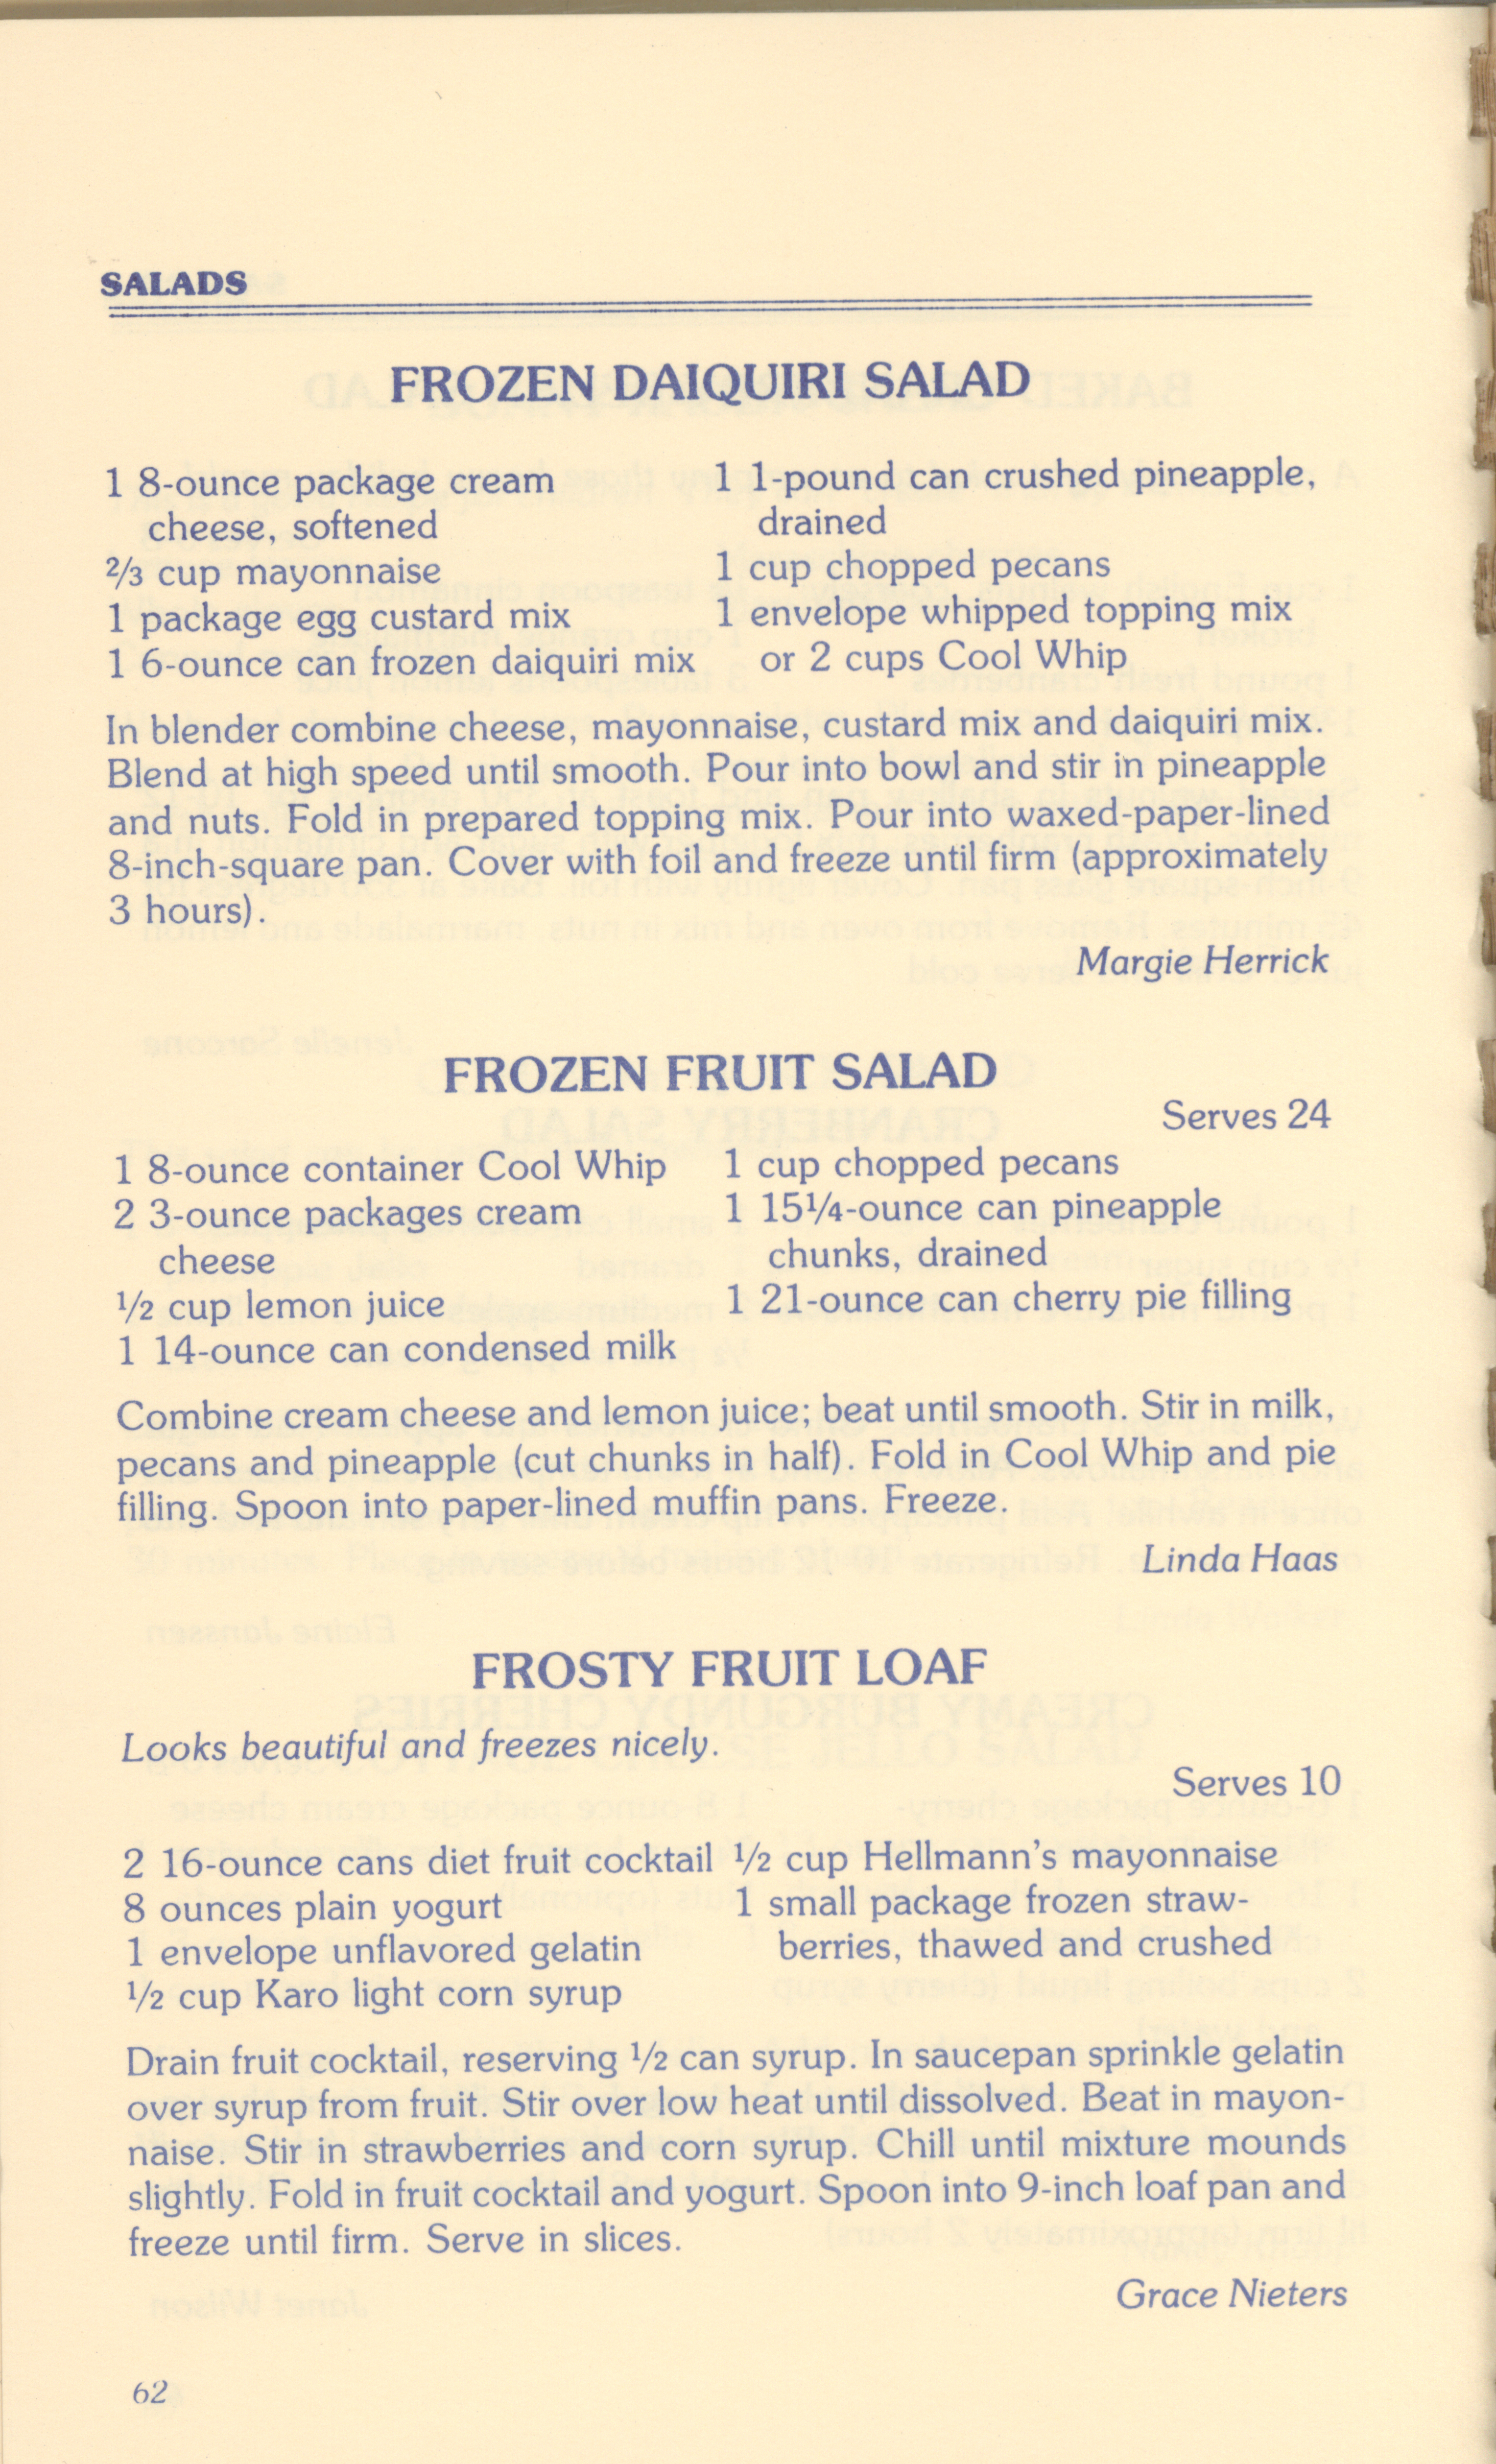 SALADS
FROZEN DAIQUIRI SALAD
1 8-ounce package cream
cheese, softened
⅔ cup mayonnaise
1 package egg custard mix
1 6-ounce can frozen daiquiri mix
1 1-pound can crushed pineapple,
drained
1 cup chopped pecans
1 envelope whipped topping mix
or 2 cups Cool Whip
In blender combine cheese, mayonnaise, custard mix and daiquiri mix.
Blend at high speed until smooth. Pour into bowl and stir in pineapple
and nuts. Fold in prepared topping mix. Pour into waxed-paper-lined
8-inch-square pan. Cover with foil and freeze until firm (approximately
3 hours).
Margie Herrick
FROZEN FRUIT SALAD
Serves 24
1 8-ounce container Cool Whip
2 3-ounce packages cream
cheese
½ cup lemon juice
1 14-ounce can condensed milk
1 cup chopped pecans
1 15¼-ounce can pineapple
chunks, drained
1 21-ounce can cherry pie filling
Combine cream cheese and lemon juice; beat until smooth. Stir in milk,
pecans and pineapple (cut chunks in half). Fold in Cool Whip and pie
filling. Spoon into paper-lined muffin pans. Freeze.
Linda Haas
FROSTY FRUIT LOAF
Looks beautiful and freezes nicely.
Serves 10
2 16-ounce cans diet fruit cocktail
8 ounces plain yogurt
1 envelope unflavored gelatin
½ cup Karo light corn syrup
½ cup Hellmann's mayonnaise
1 small package frozen straw-
berries, thawed and crushed
Drain fruit cocktail, reserving ½ can syrup. In saucepan sprinkle gelatin
over syrup from fruit. Stir over low heat until dissolved. Beat in mayon-
naise. Stir in strawberries and corn syrup. Chill until mixture mounds
slightly. Fold in fruit cocktail and yogurt. Spoon into 9-inch loaf pan and
freeze until firm. Serve in slices.
Grace Nieters
62